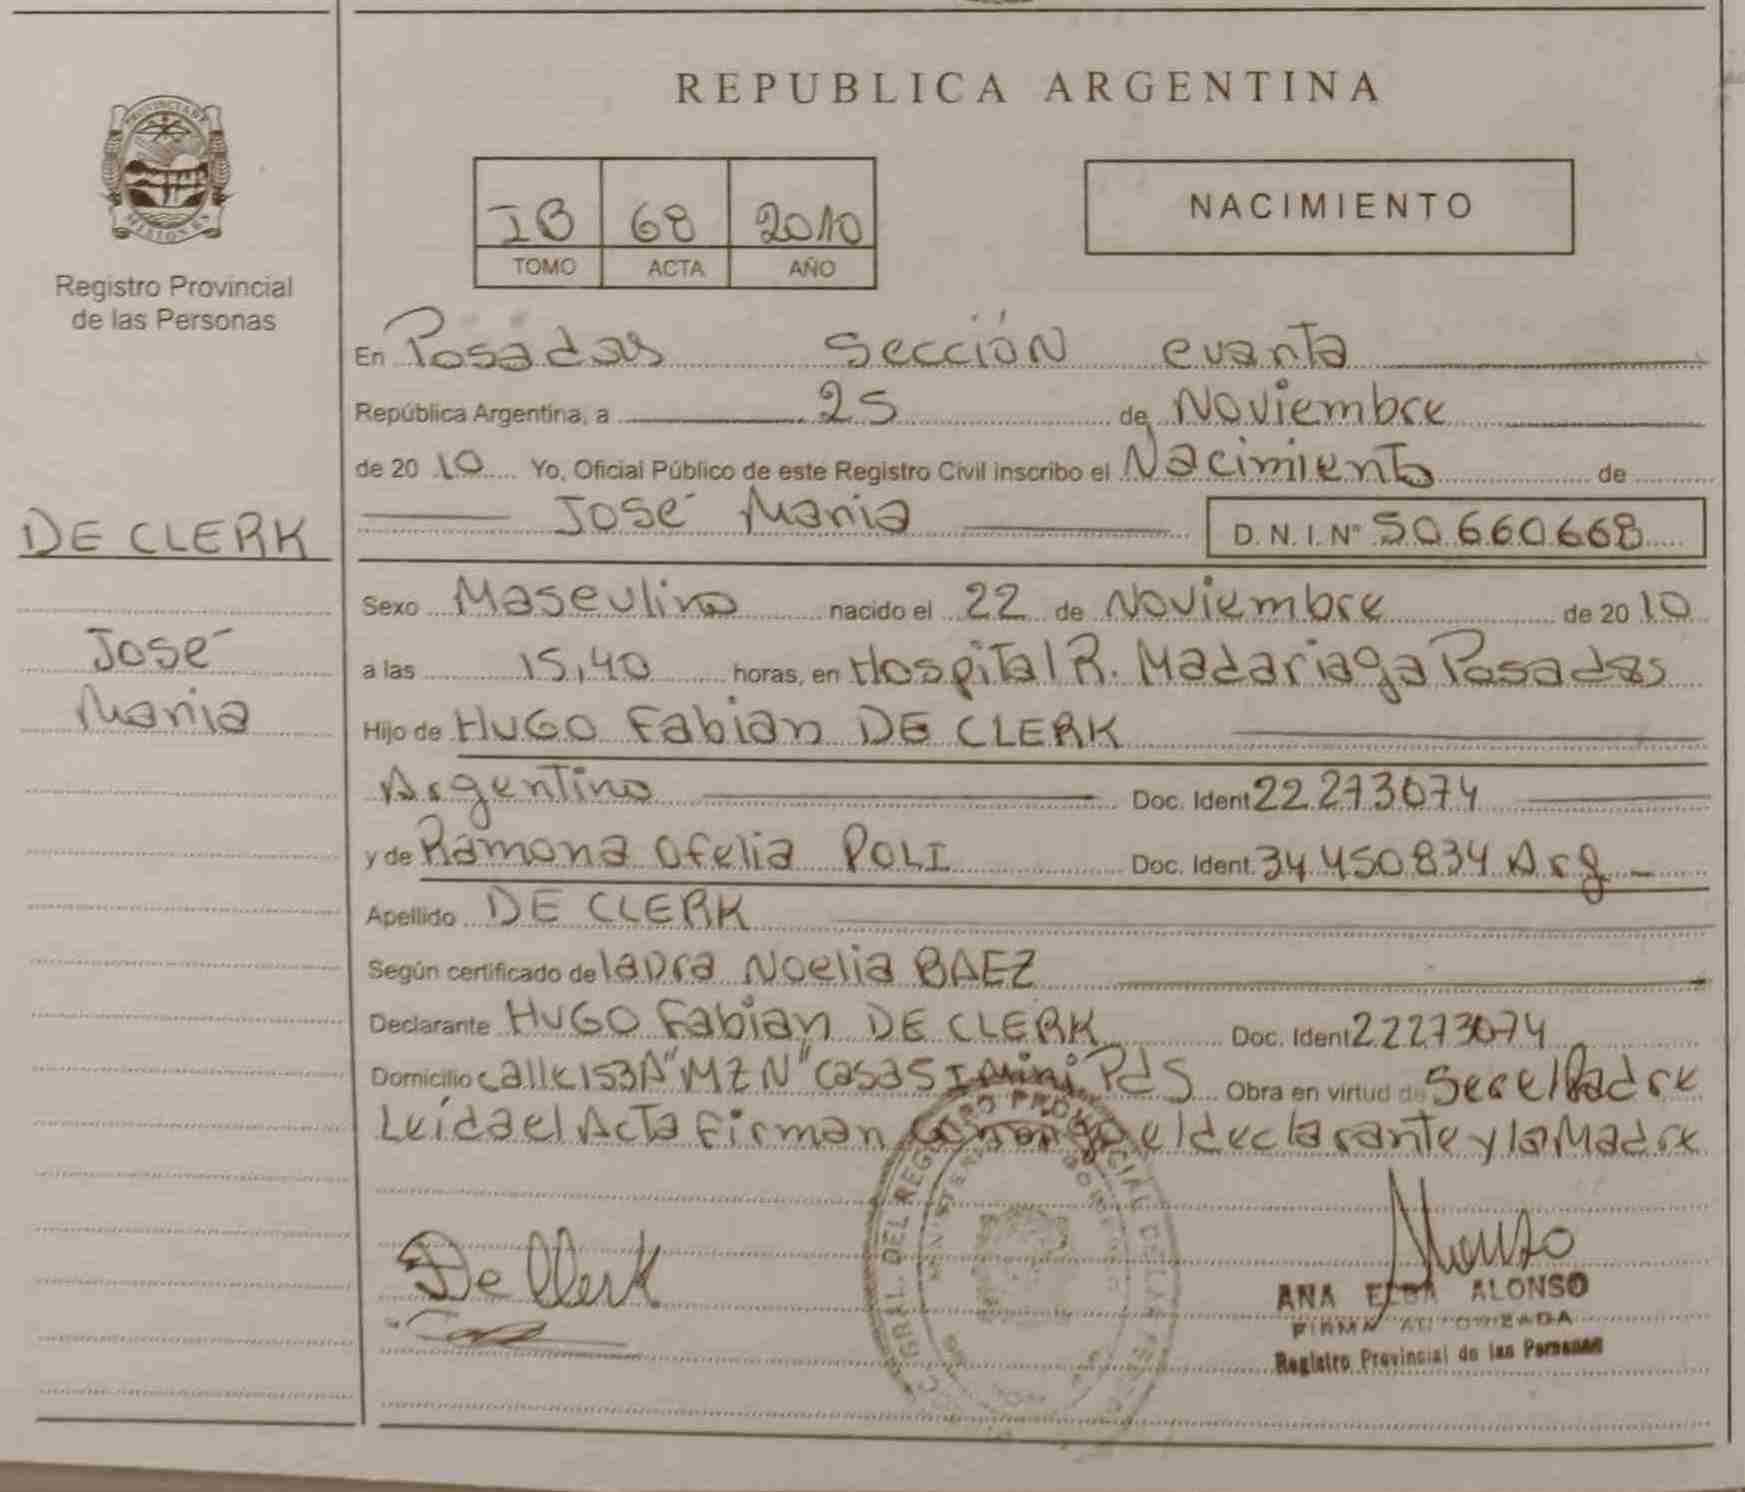 REPUBLICA ARGENTINA
PROVINCIA DE
MISIONES
Registro Provincial
de las Personas
IB 68 2010
TOMO ACTA AÑO
NACIMIENTO
En Posadas Sección cuarta
República Argentina, a 25 de Noviembre
de 20 10 Yo, Oficial Público de este Registro Civil inscribo el Nacimiento de
José Maria D. N. I. Nº 50.660.668
DE CLERK
José
Maria
Sexo Masculino nacido el 22 de Noviembre de 20 10
a las 15,40 horas, en Hospital R. Madariaga Posadas
Hijo de HUGO Fabian DE CLERK
Argentino Doc. Ident 22.273074
y de Ramona Ofelia POLI Doc. Ident. 34.450.834 Arg
Apellido DE CLERK
Según certificado de laura Noelia BAEZ
Declarante HUGO Fabian DE CLERK Doc. Ident 22273074
Domicilio calle 153A "MZ N" casa 5 Pds Obra en virtud de Ser el Padre
Leída el Acta Firman el declarante y la Madre
De Clerk
Alonso
ANA ELBA ALONSO
FIRMA AUTORIZADA
Registro Provincial de las Personas
GRAL. DEL REGISTRO PROVINCIAL DE LAS